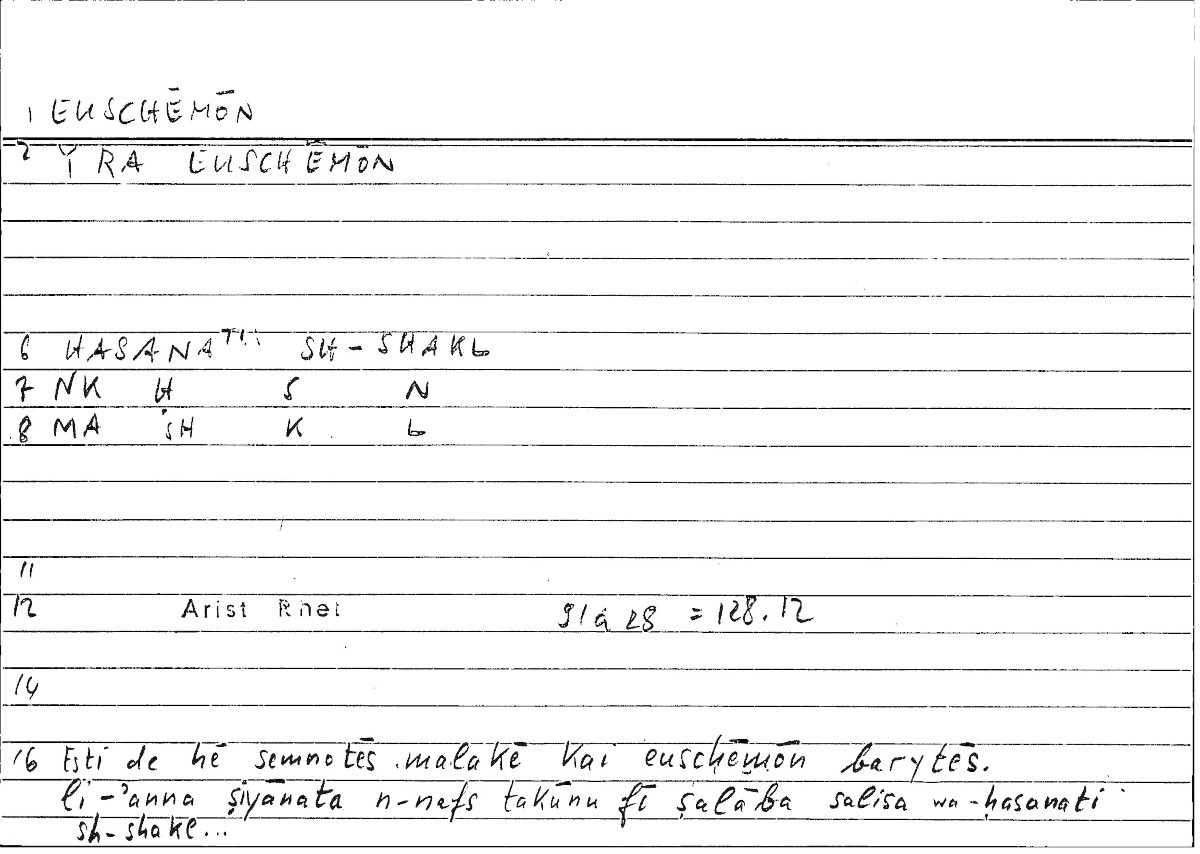 1 EUSCHĒMŌN
2 Y RA EUSCHĒMŌN
6 HASANATI SH-SHAKL
7 NK Ḥ S N
8 MA SH K L
11
12 Arist Rhet 91a28 = 128.12
14
16 Esti de hē semnotēs malakē kai euschēmōn barytēs.
li-ʾanna ṣiyānata n-nafs takūnu fī ṣalāba salisa wa-ḥasanati
sh-shakl...